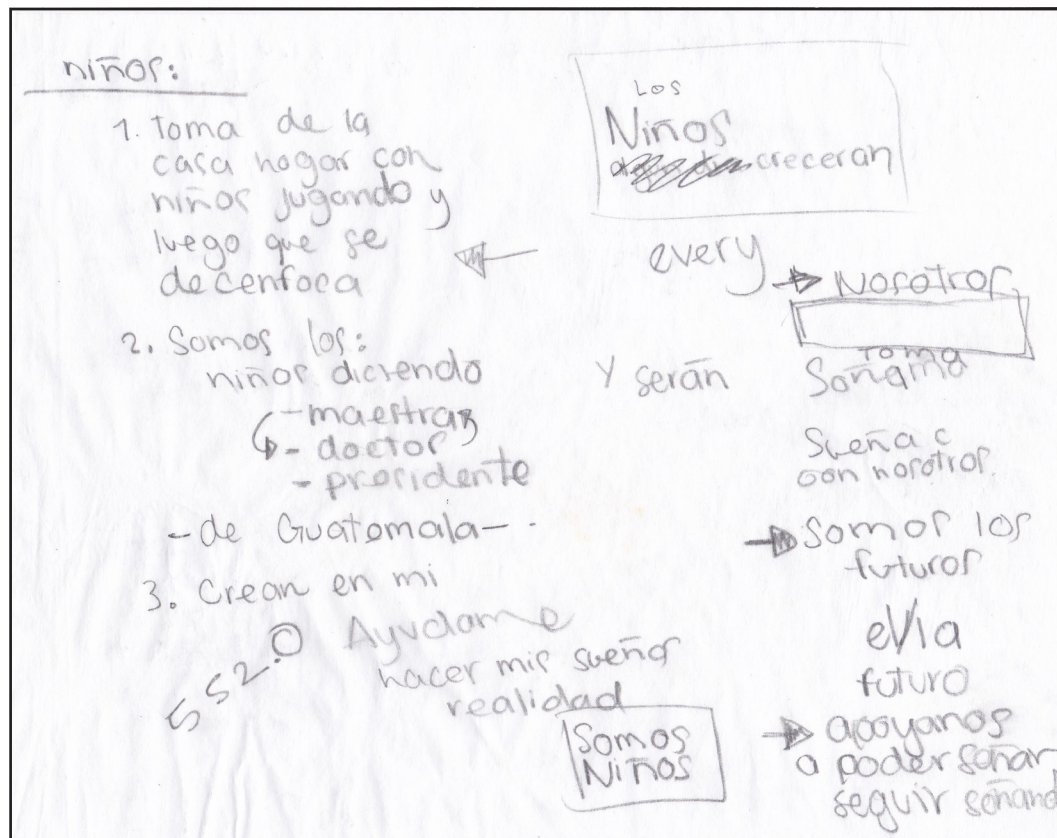 niños:
1. Toma de la
casa hogar con
niños jugando y
luego que se
decenfoca
2. Somos los:
niños diciendo
- maestras
- doctor
- presidente
- de Guatemala -
3. Crean en mi
Ayudame
hacer mis sueños
realidad
552.0
Los
Niños
creceran
every
Nosotros
Y serán
toma
Sueña c
con nosotros.
Somos los
futuros
el/la
futuro
Somos
Niños
apoyanos
a poder soñar,
seguir soñand